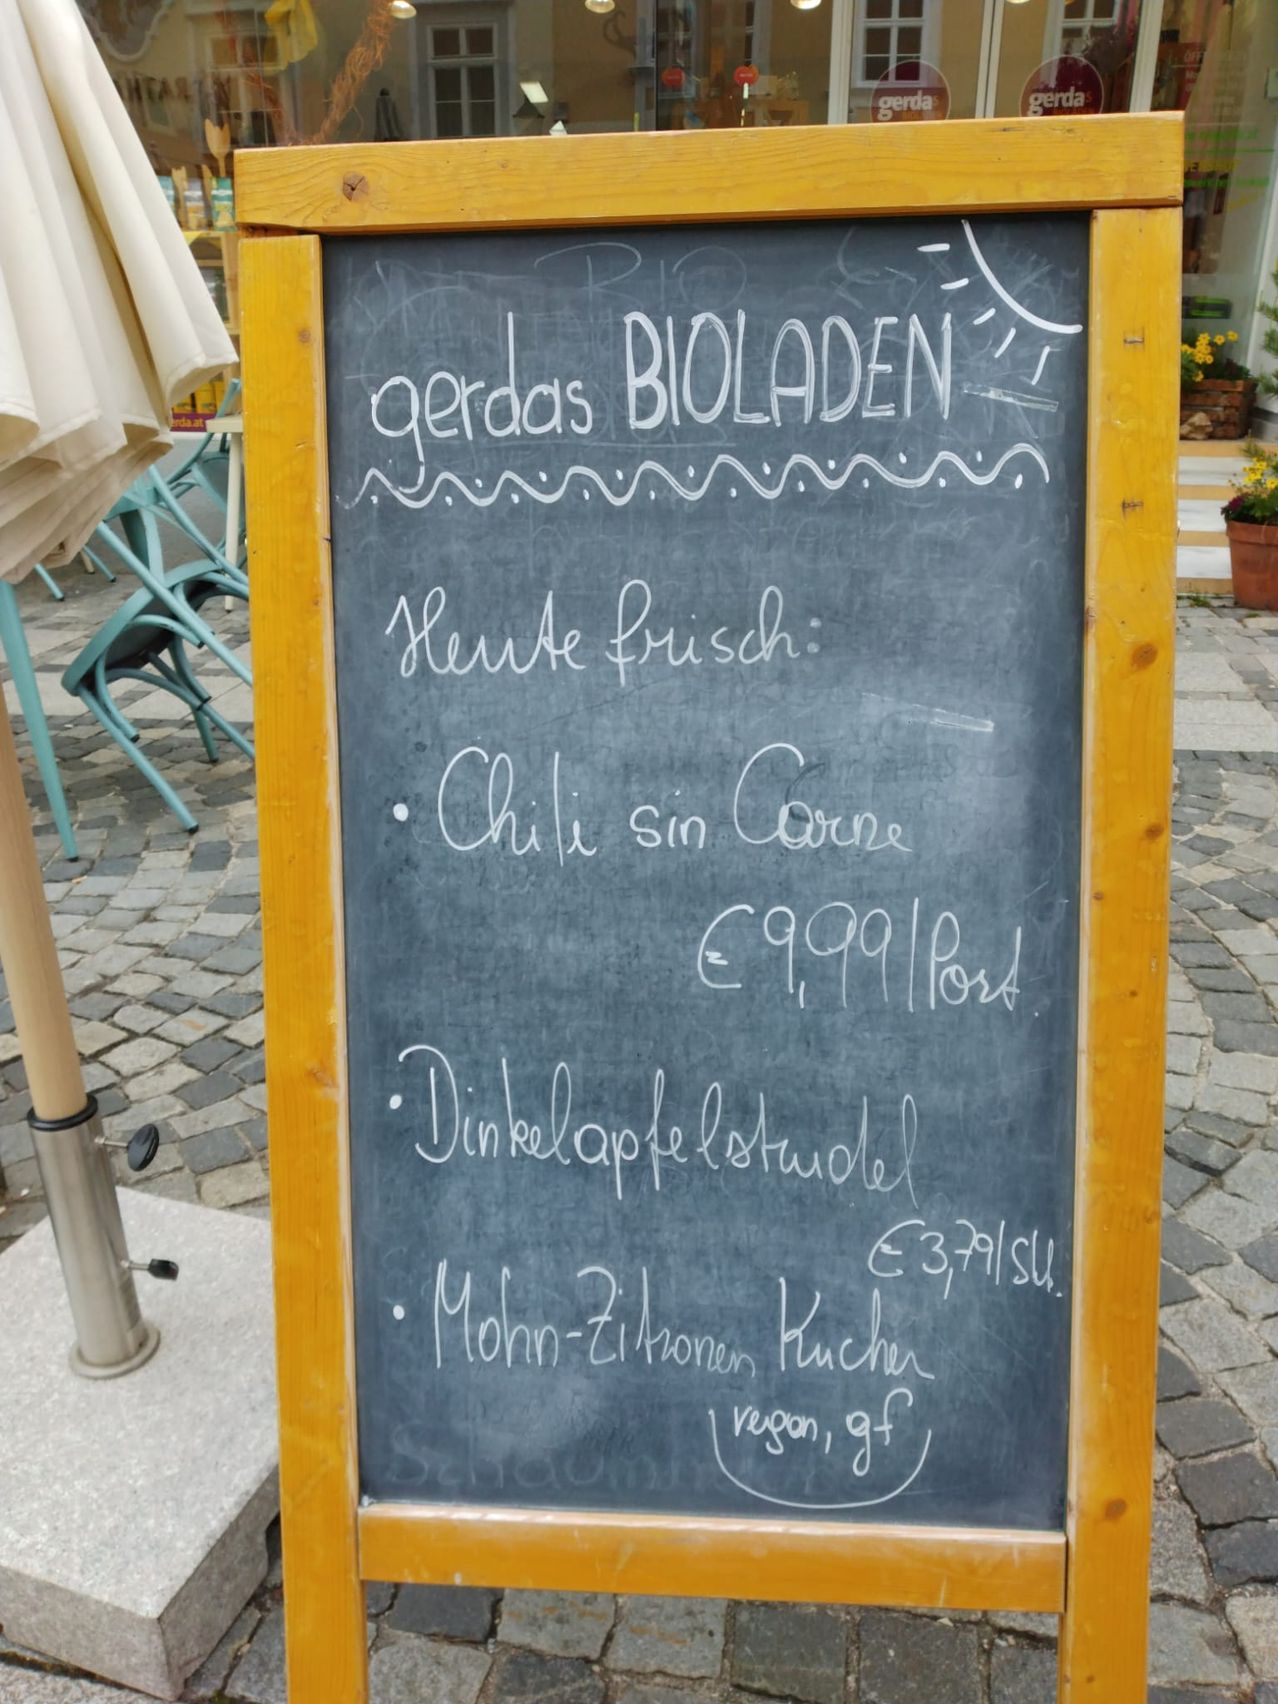 gerdas
gerdas
erda.at
BIO
gerdas BIOLADEN
Heute frisch:
• Chili sin Carne
€9,99/Port.
• Dinkelapfelstrudel
€3,79/Stk.
• Mohn-Zitronen Kuchen
vegan, gf